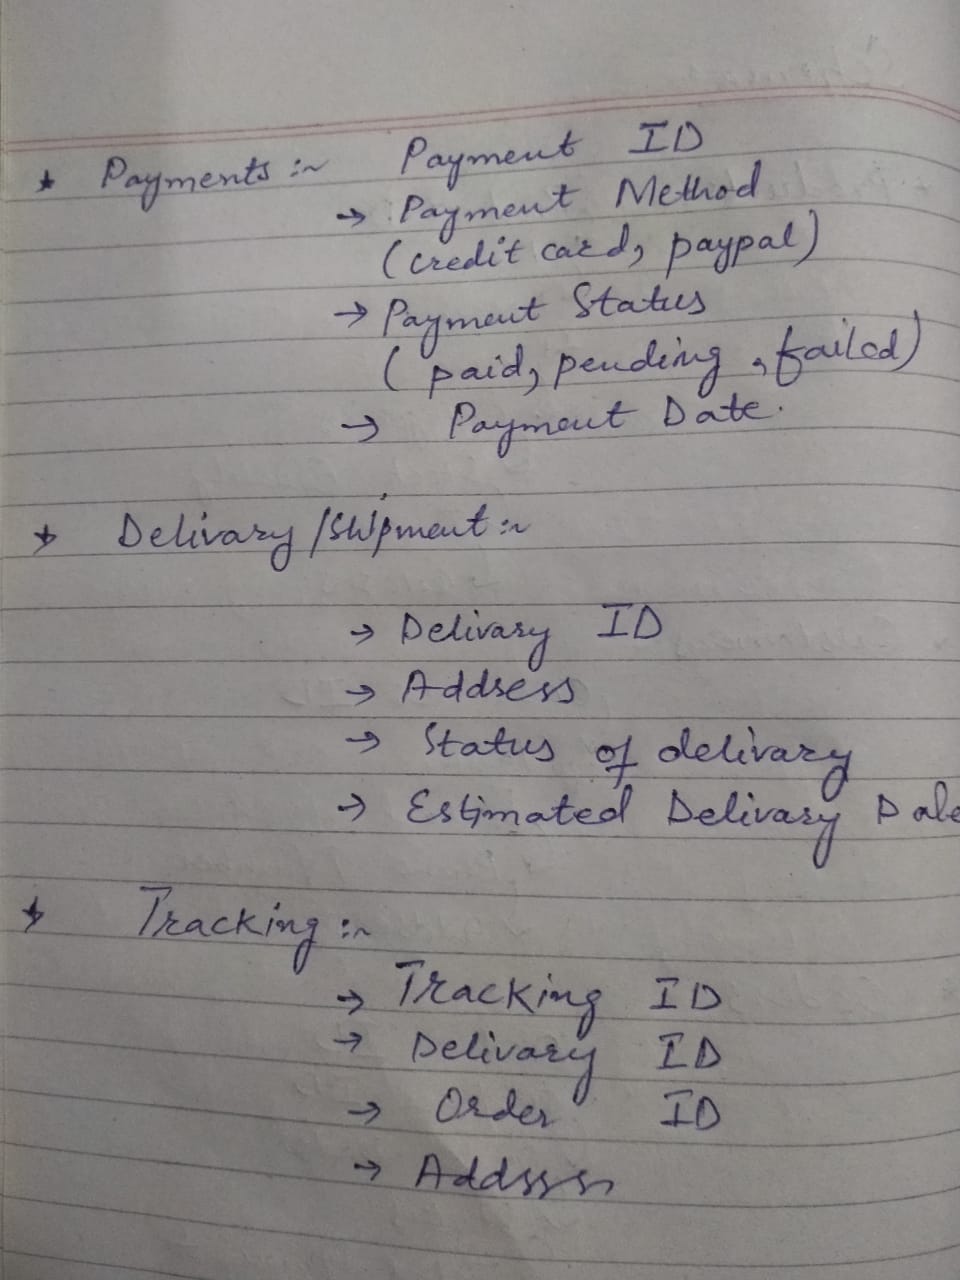 * Payments :~ Payment ID
→ Payment Method
(credit card, paypal)
→ Payment Status
( paid, pending , failed)
→ Payment Date.
* Delivary /Shipment :~
→ Delivary ID
→ Address
→ Status of delivary
→ Estimated Delivary Date
* Tracking :~
→ Tracking ID
→ Delivary ID
→ Order ID
→ Address